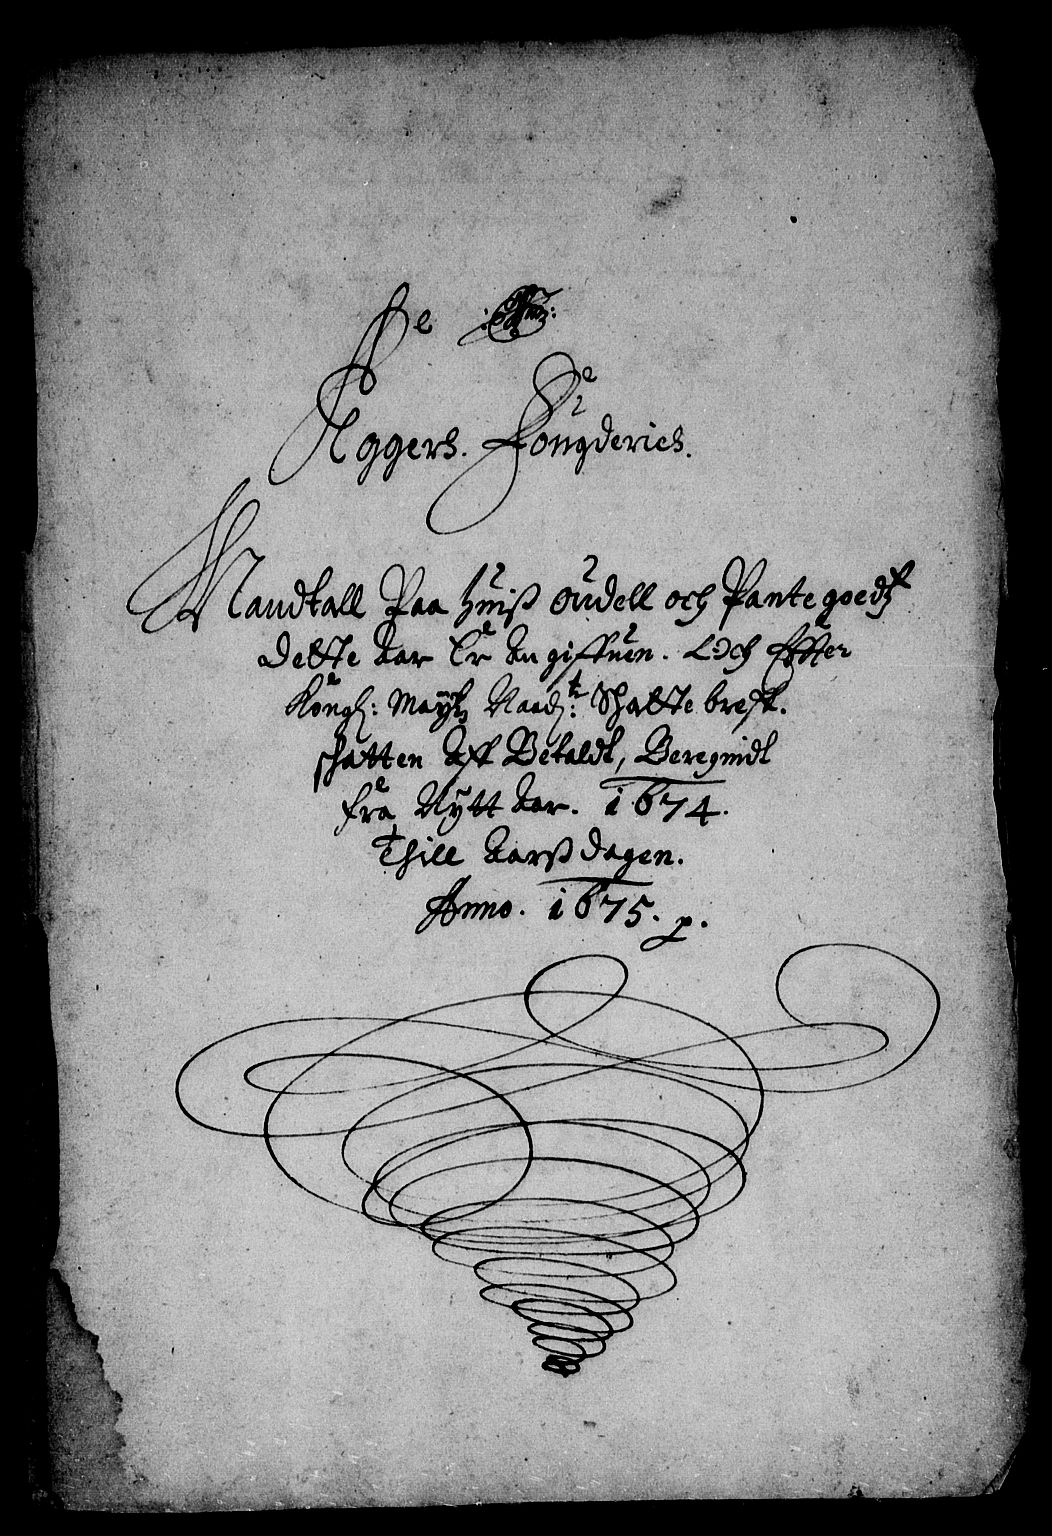 Aggers. Fougderies.
Mandtall Paa huiß oudell och Pante goedtz
dette Aar Er An giffuen. Och Effter
Kongl: Maytz Naadt: Schatte breff.
schatten Aff Betaldt, Beregnidt
fra Nytt Aar. 1674.
Thill Aarß dagen.
Anno. 1675. p.